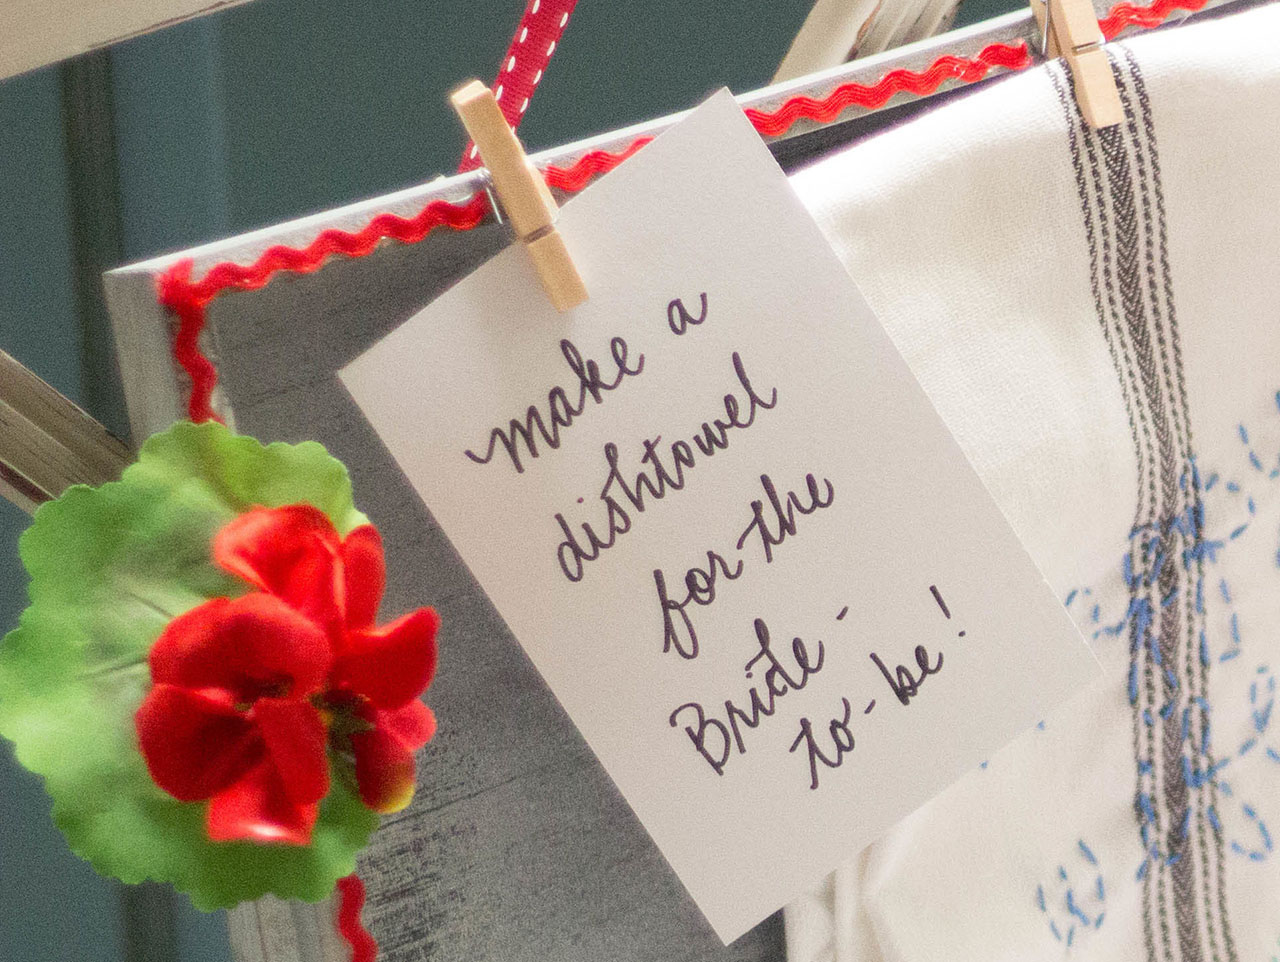 make a
dishtowel
for the
Bride-
to-be!